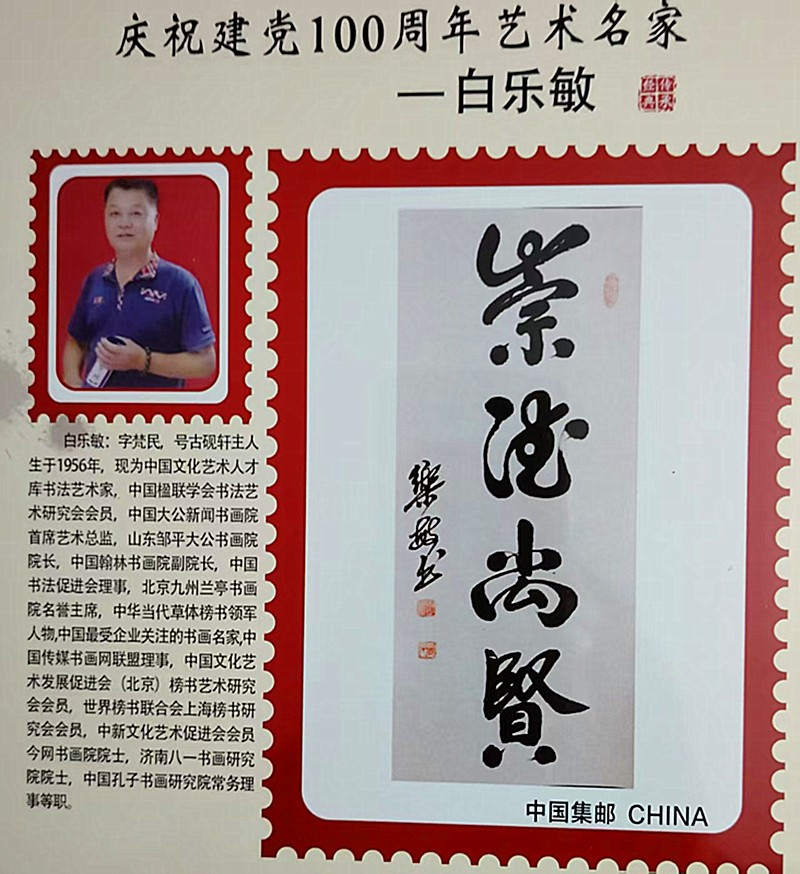 庆祝建党100周年艺术名家
—白乐敏
传承
经典
白乐敏：字梵民，号古砚轩主人
生于1956年，现为中国文化艺术人才
库书法艺术家，中国楹联学会书法艺
术研究会会员，中国大公新闻书画院
首席艺术总监，山东邹平大公书画院
院长，中国翰林书画院副院长，中国
书法促进会理事，北京九州兰亭书画
院名誉主席，中华当代草体榜书领军
人物,中国最受企业关注的书画名家,中
国传媒书画网联盟理事，中国文化艺
术发展促进会（北京）榜书艺术研究
会会员，世界榜书联合会上海榜书研
究会会员，中新文化艺术促进会会员
今网书画院院士，济南八一书画研究
院院士，中国孔子书画研究院常务理
事等职。
崇德尚賢
樂敏书
中国集邮 CHINA